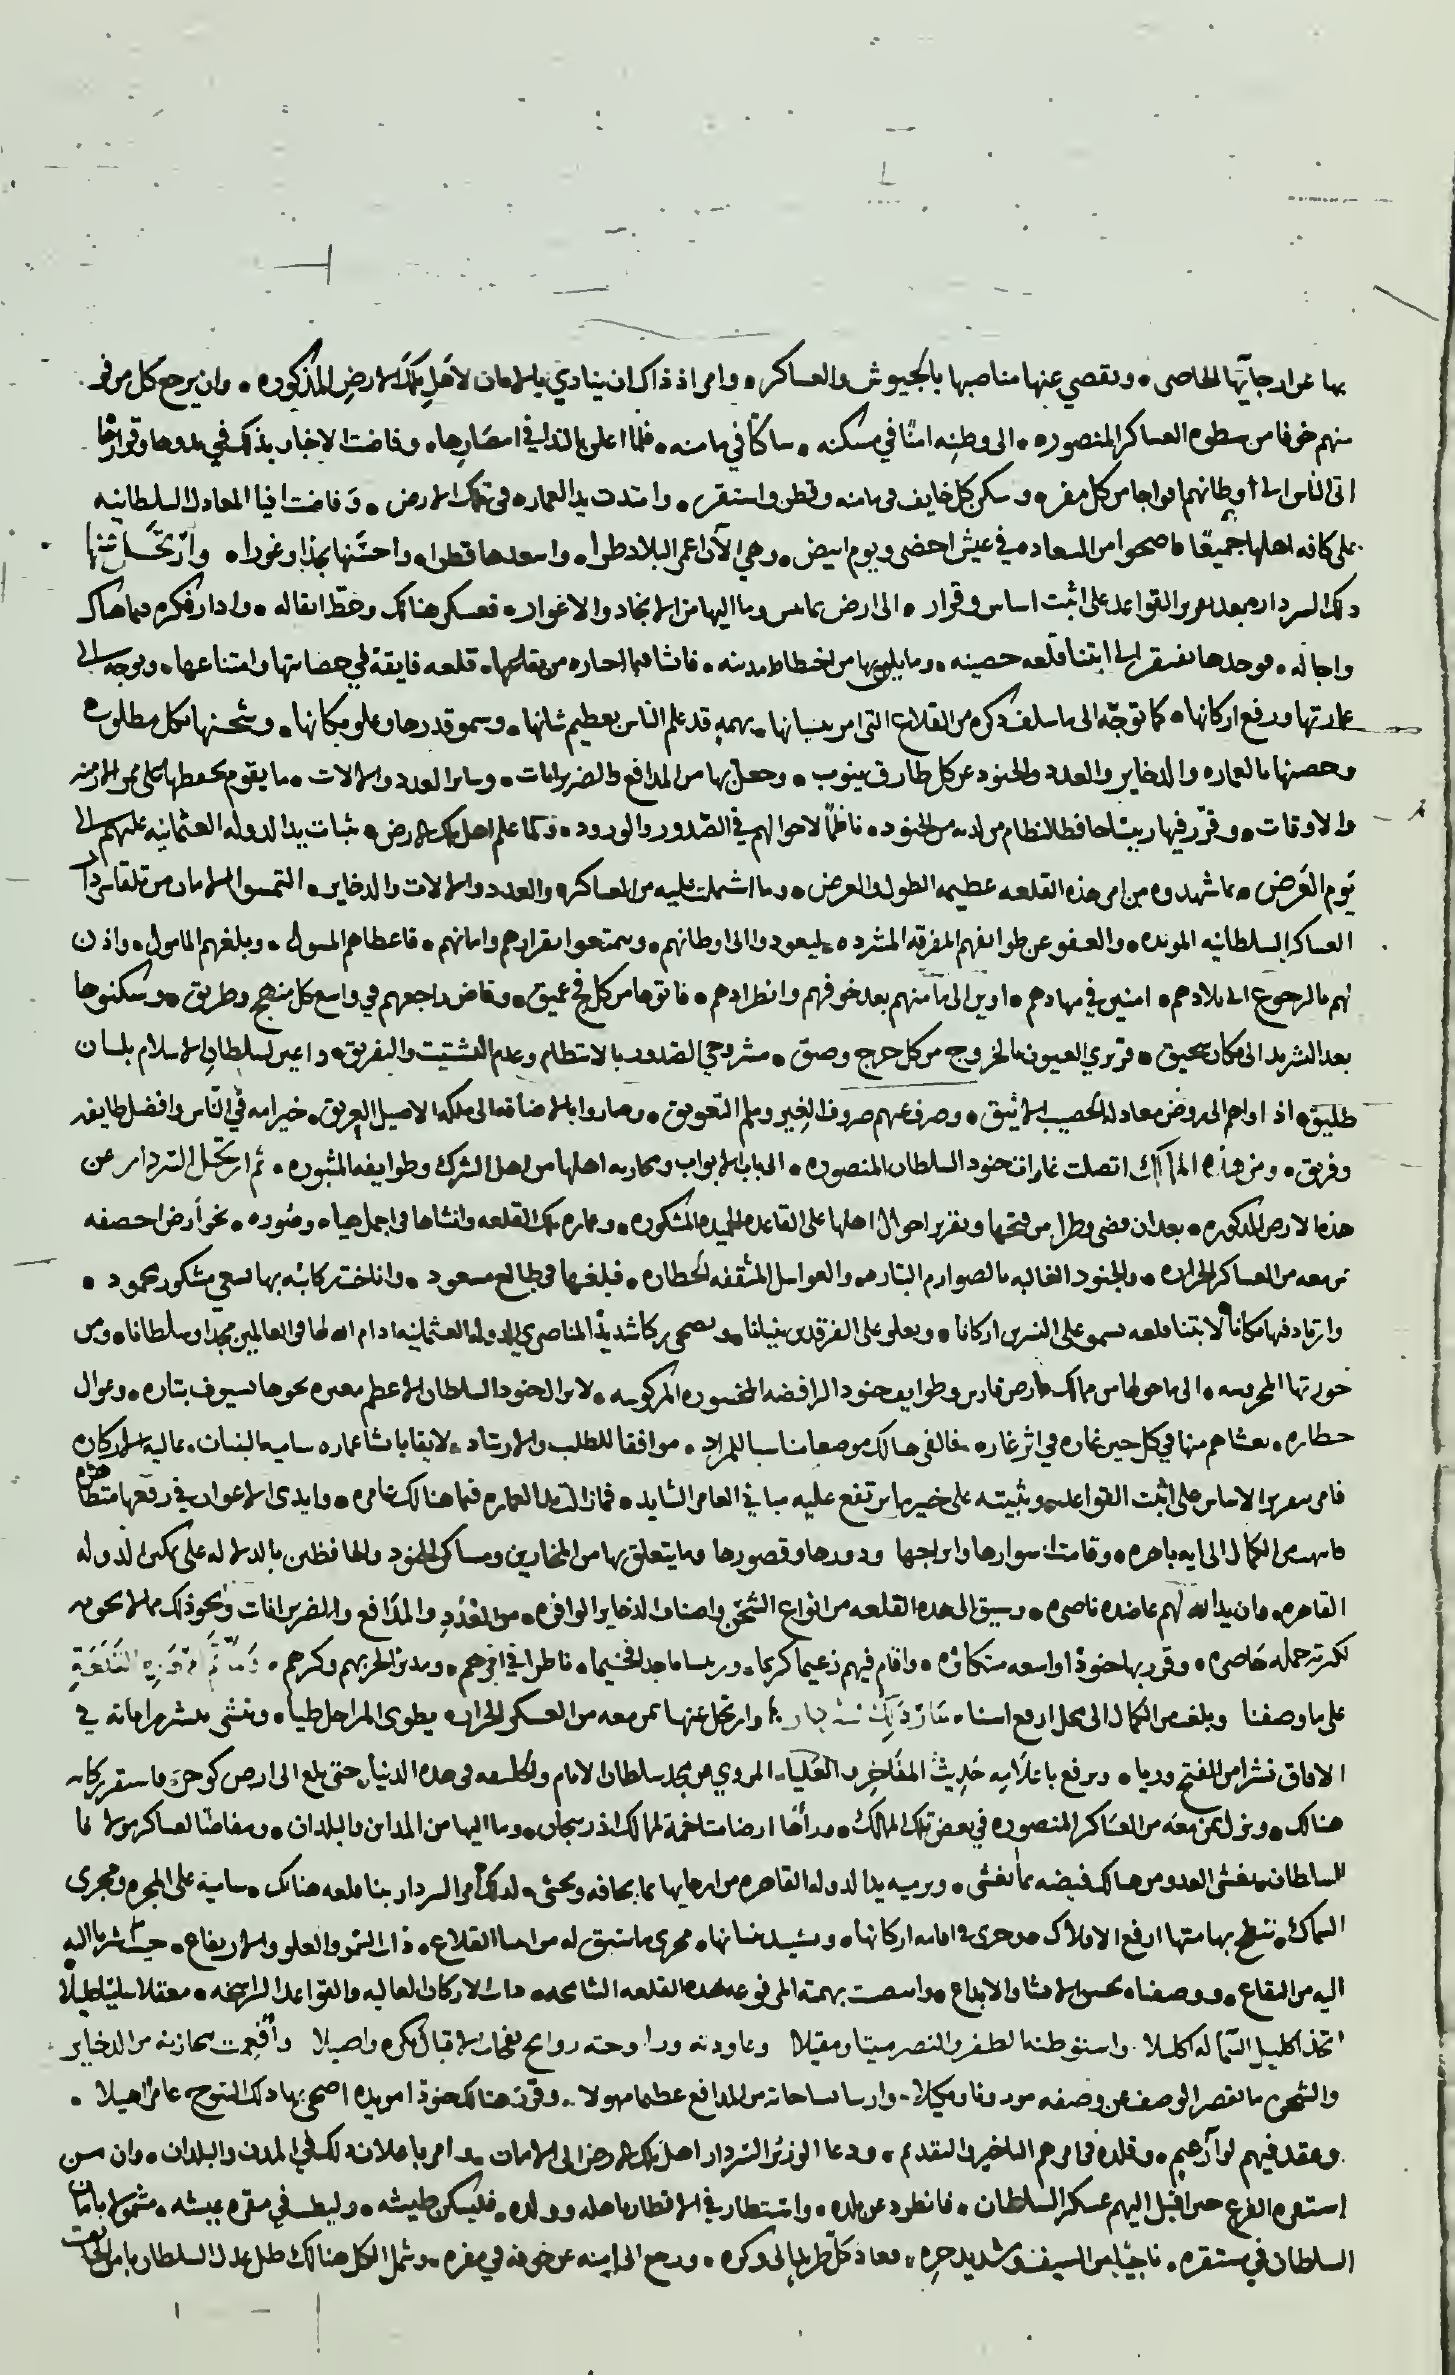 بها عن ارجايها القاصي • ويقصي عنها مناصبها بالجيوش والعساكر • وامر اذ ذاك ان ينادي بالامان لأهل تلك الارض المذكوره • وان يرجع كل من فر
منهم خوفا من سطوه العساكر المنصوره • الى وطنه امنًا في مسكنه • ساكنًا في مامنه • فلما اعلن بالندا في امصارها • وفاضت الاخبار بذلك في بدوها وقرارها
اتى الناس الى أوطانهم افواجا من كل مفر • وسكن كل خايف في مامنه وقطن واستقر • وامتدت يد العماره في تلك الارض • وفاضت افيا المعادل السلطانيه
على كافه اهلها جميعًا فاصبحوا من السعاده في عيش اخضر ويوم ابيض • وهي الآن اعمر البلاد طرا • واسعدها قطرا • واحسنها نجدا وغورا • وارتحل عنها
ذلك السردار بعد تقرير القواعد على اثبت اساس وقرار • الى ارض وما اليها من الانجاد والاغوار • فعسكر هنالك وحطّ اثقاله • وادار فكره فيما هناك
واجاله • فوجدها تفتقر الى ابتنا قلعه حصينه • وما يليق بها من اختطاط مدينه • فانشا فيما اختاره من بقاعها • قلعه فايقة في حصانتها وامتناعها • وتوجه الى
عمارتها ورفع اركانها • كما توجّه الى ما سلف ذكره من القلاع التي امر ببنيانها • بهمهٍ قد علم الناس بعظيم شانها • وسمو قدرها وعلو مكانها • وشحنها بكل مطلوب
وحصنها بالعماره والدخاير والعدد والجنود عن كل طارق ينوب • وجعل بها من المدافع والضربزانات • وساير العدد والالات • ما يقوم بحفظها على ممر الازمنه
والاوقات • وقرّر فيها رييسًا حافظا لنظام من لديه من الجنود • ناظمًا لاحوالهم في الصّدور والورود • ولما علم اهل تلك الارض • بثبات يد الدوله العثمانيه عليهم الى
يوم العرض • بما شهدوه من امر هذه القلعه عظيمه الطول والعرض • وما اشتملت عليه من العساكر والعدد والالات والدخاير • التمسوا الامان من تلقا سردار
العساكر السلطانيه المويده • والعفو عن طوايفهم المفرقه المشرده • ليعودوا الى اوطانهم • ويتمتعوا بقرارهم وامانهم • فاعطاهم المسول • وبلغهم المامول • واذن
لهم بالرجوع الى بلادهم • امنين في مهادهم • اوين الى مامنهم بعد خوفهم وانطرادهم • فاتوها من كل فج عميق • وفاض راجعهم في واسع كل منهج وطريق • وسكنوها
بعد التشريد الى مكان سحيق • قريري العيون بالخروج من كل حرج وضيق • مشروحي الصدور بالانتظام وعدم التشتيت والتفريق • داعين لسلطان الاسلام بلسان
طليق • اذ اواهم الى روض معادله الخصيب الاثيق • وصرف عنهم صروف الغِير وملم التّعويق • وصاروا بالاضافه الى ملكه الاصيل العريق • خير امه في النّاس وافضل طايفه
وفريق • ومن هذه الممالك اتصلت غارات جنود السلطان المنصوره • الى باب الابواب ومحاربه اهلها من اهل الشرك وطوايفه المثبوره • ثم ارتحل السّردار عن
هذه الارض المذكوره • بعد ان قضى وطرا من فتحها وتقرير احوال اهلها على القاعده الحميده المشكوره • وعماره تلك القلعه وانشاها في اجمل هياه وصُوره • نحو أرض
بمن معه من العساكر الجراره • والجنود الغالبه بالصوارم البتاره • والعواسل المثقفه الخطاره • فبلغها في طالع مسعود • واناخت ركائبه بها بسعي مشكور محمود •
وارتاد فيها مكانا لابتنا قلعه تسمو على النسرين اركانا • وتعلو على الفرقدين بنيانا • وتضحى ركنا شديدًا لمناصري الدوله العثمانيه ادام الله لها في العالمين مجدا وسلطانا • ومن
حوزتها المحروسه • الى ما حولها من ممالك ارض فارس وطوايف جنود الرافضه المخسوره المركوسه • لا تزال جنود السلطان الاعظم مغيره نحوها بسيوف بتاره • وعوال
خطاره • تغشاهم منها في كل حين غاره في اثر غاره • فالفى هنالك موضعا مناسبا للمراد • موافقا للطلب والارتياد • لايقا بانشا عماره ساميه البنيان • عاليه الاركان
فامر بتقرير الاساس على اثبت القواعد • وتثبيته على خير ما يرتفع عليه مباني العامر الشايد • فما زالت يد العماره فيما هنالك عامره • وايدي الاعوان في رفعها متظاهره
فانتهت من الكمال الى ايه باهره • وقامت اسوارها وابراجها ودورها وقصورها وما يتعلق بها من المخازين ومساكن الجنود والحافظين بالدلاله على تمكين الدوله
القاهره • وان يد الله لهم عاضده ناصره • وسيق الى هذه القلعه من انواع الشحن واصناف الدخاير الوافره • من العُدد والمدافع والضربزانات ونحو ذلك مما لا يحوي
لكثرته جمله حَاصره • وقرر بها جنودًا واسعه متكاثره • واقام فيهم زعيما كريما • ورييسا ماجدا فخيما • ناظرا في امرهم • ومدبرا لحربهم وكرهم • ولمّا تم امر هذه القلعة
على ما وصفنا وبلغت من الكمال الى محل ارفع اسنا • وارتحل عنها بمن معه من العسكر الجرار • يطوى المراحل طيا • وتفشى بنشر راياته في
الافاق نشرا من الفتح وريا • ويرفع باعلامه حديث المفاخر والعليا • المروي عن مجد سلطان الانام وخليفه الله في هذه الدنيا • حتى بلغ الى ارض فاستقر ركابه
هنالك • ونزل بمن معه من العساكر المنصوره في بعض تلك الممالك • ورأها ارضا متاخمة لممالك اذربيجان • وما اليها من المداين والبلدان •
السلطان • يغشى العدو من هنالك فيضه بما يغشى • ويرميه يد الدوله القاهره من ارجايها بما يخافه ويخشى • لذلك امر السردار ببنا قلعه هنالك • سامية على المجره ومجرى
السماك • تنطح بهامتها ارفع الافلاك • وجرى في اقامه اركانها • وتشييد بنيانها • مجرى ما سبق له من انشا القلاع • ذات السّمو والعلو والارتفاع • حيث اشرنا اليه
اليه من البقاع • ووصفناه بحسن الانشا والابداع • واتصفت بهمته المرفوعه هذه القلعه الشامخه • ذات الاركان العاليه والقواعد الراسخه • معقلا
اتخذ اكليل السّما له اكليلا واستوطنه الظفر والنصر مبيتا ومقيلا وعاودته وراوحته روايح نفحات الاقبال بكره واصيلا وأفعمت مخازنه من الدخاير
والشحن ما يقصر الوصف عن وصفه موزونا ومكيلا • وارسا بساحاته من المدافع عظيما مهولا • وقرن هنالك جنودًا مويده اضحى بها ذلك السوح عامرا اهيلا •
وعقد فيهم لوا زعيم • وقلده في امرهم التاخير والتقديم • ودعا الوزير السّردار اهل تلك الارض الى الامان • وامر باعلان ذلك في المدن والبلدان • وان من
استفزه الفزع حين اقبل اليهم عسكر السلطان • فانطرد عن بلده • واستطار في الاقطار باهله وولده • فليسكن طيشه • وليطب في مقره عيشه • مشمولا بامان
السلطان في مستقره • ناجيًا من السيف وشديد حره • فعاد كل طريد الى وكره • ورجع الى امنه عن خوفه في مفره • وشمل الكل هنالك ظل عدل السلطان